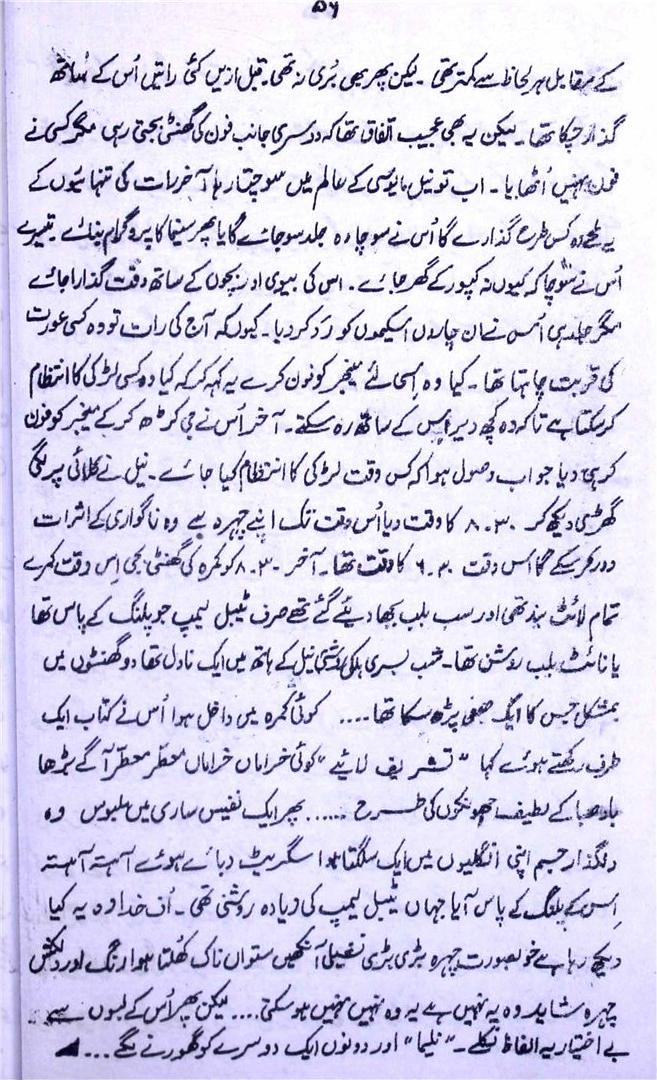 ۵۶
کے مقابل ہر لحاظ سے کمتر تھی ۔ لیکن پھر بھی بُری نہ تھی۔ قبل ازیں کئی راتیں اُس کے ساتھ
گذار چکا تھا ۔ لیکن یہ بھی عجیب اتفاق تھا کہ دوسری جانب فون کی گھنٹی بجتی رہی مگر کسی نے
فون نہیں اُٹھایا ۔ اب تو نیل مایوسی کے عالم میں سوچتا رہا آخر رات کی تنہائیوں کے
یہ لمحے وہ کس طرح گذارے گا اُس نے سوچا وہ جلد سو جائے گا یا پھر سنیما کا پروگرام بنائے ۔ تیسرے
اُس نے سوچا کہ کیوں نہ کپور کے گھر جائے ۔ اس کی بیوی اور بچوں کے ساتھ وقت گذارا جائے
مگر جلد ہی اُس نے ان چاروں اسکیموں کو رَد کر دیا ۔ کیوں کہ آج کی رات تو وہ کسی عورت
کی قربت چاہتا تھا ۔ کیا وہ اِسی لئے منیجر کو فون کرے یہ کہہ کر کہ کیا وہ کسی لڑکی کا انتظام
کر سکتا ہے تاکہ وہ کچھ دیر اس کے ساتھ رہ سکتے ۔ آخر اُس نے جی کڑھ کر کے منیجر کو فون
کر ہی دیا جواب وصول ہوا کہ کس وقت لڑکی کا انتظام کیا جائے ۔ نیل نے کلائی پر لگی
گھڑی دیکھ کر ۸.۳۰ کا وقت دیا اُس وقت تک اپنے چہرہ سے وہ ناگواری کے اثرات
دور کر سکے گا اس وقت ۶.۳۰ کا وقت تھا ۔ آخر ۸.۳۰ کو کمرہ کی گھنٹی بجی اِس وقت کمرے
تمام لائٹ بند تھی اور سب بلب بجھا دیئے گئے تھے صرف ٹیبل لیمپ جو پلنگ کے پاس تھا
یا نائٹ بلب روشن تھا ۔ شب بسری ہلکی روشنی نیل کے ہاتھ میں ایک ناول تھا دو گھنٹوں میں
بمشکل جس کا ایک صفحہ پڑھ سکا تھا .... کوئی کمرہ میں داخل ہوا اُس نے کتاب ایک
طرف رکھتے ہوئے کہا " تشریف لائیے " کوئی خراماں خراماں معطّر معطّر آگے بڑھا
بادِ صبا کے لطیف جھونکوں کی طرح ...... پھر ایک نفیس ساری میں ملبوس وہ
دلگداز جسم اپنی انگلیوں میں ایک سلگتا ہوا سگریٹ دبائے ہوئے آہستہ آہستہ
اِس کے پلنگ کے پاس آیا جہاں ٹیبل لیمپ کی زیادہ روشنی تھی ۔ اُف خدا وہ یہ کیا
دیکھ رہا ہے خوبصورت چہرہ بڑی بڑی نشیلی آنکھیں ستواں ناک کھُلتا ہوا رنگ اور دلکش
چہرہ شاید وہ یہ نہیں ہے یہ وہ نہیں نہیں ہو سکتی .... لیکن پھر اُس کے لبوں سے
بے اختیار یہ الفاظ نکلے ۔ " نلیما " اور دونوں ایک دوسرے کو گھورنے لگے ...